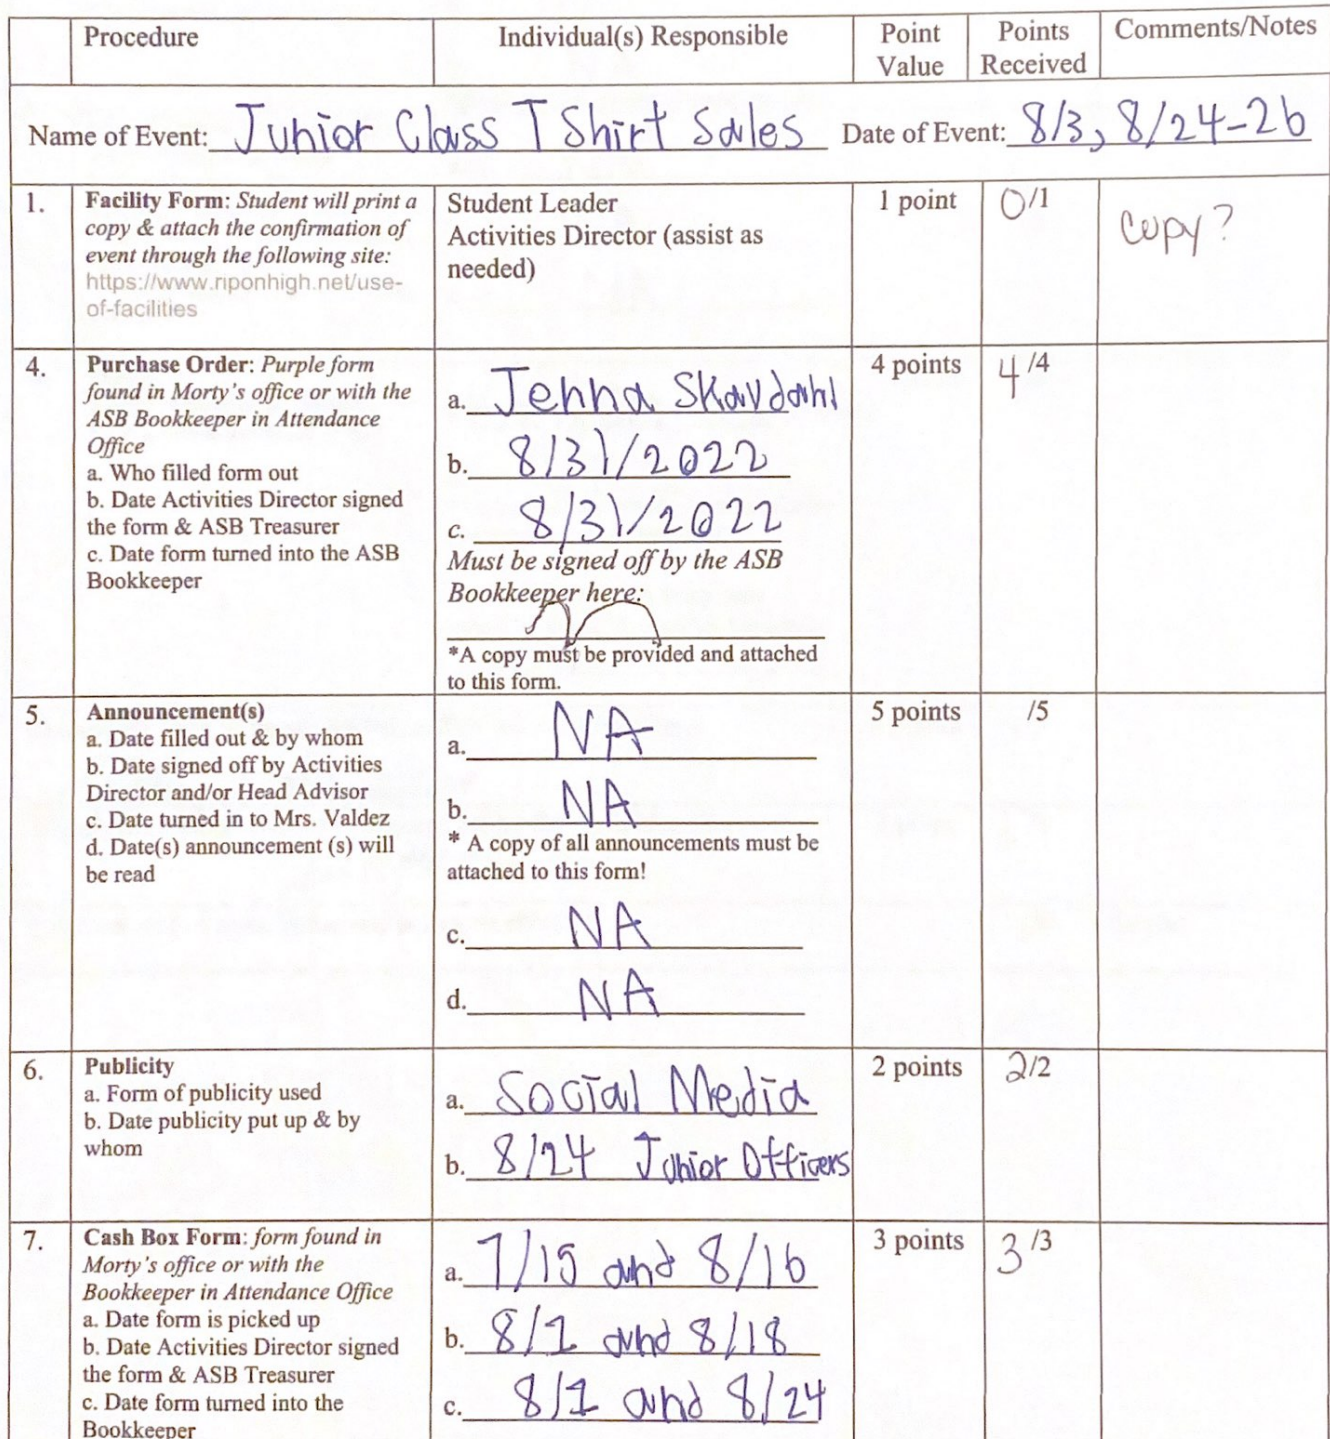 Procedure
Individual(s) Responsible
Point Value
Points Received
Comments/Notes
Name of Event: Junior Class T Shirt Sales Date of Event: 8/3, 8/24-26
1.
Facility Form: Student will print a
copy & attach the confirmation of
event through the following site:
https://www.riponhigh.net/use-
of-facilities
Student Leader
Activities Director (assist as
needed)
1 point
0/1
Copy?
4.
Purchase Order: Purple form
found in Morty's office or with the
ASB Bookkeeper in Attendance
Office
a. Who filled form out
b. Date Activities Director signed
the form & ASB Treasurer
c. Date form turned into the ASB
Bookkeeper
a. Jenna Skavdahl
b. 8/31/2022
c. 8/31/2022
Must be signed off by the ASB
Bookkeeper here:
*A copy must be provided and attached
to this form.
4 points
4/4
5.
Announcement(s)
a. Date filled out & by whom
b. Date signed off by Activities
Director and/or Head Advisor
c. Date turned in to Mrs. Valdez
d. Date(s) announcement (s) will
be read
a. NA
b. NA
* A copy of all announcements must be
attached to this form!
c. NA
d. NA
5 points
/5
6.
Publicity
a. Form of publicity used
b. Date publicity put up & by
whom
a. Social Media
b. 8/24 Junior Officers
2 points
2/2
7.
Cash Box Form: form found in
Morty's office or with the
Bookkeeper in Attendance Office
a. Date form is picked up
b. Date Activities Director signed
the form & ASB Treasurer
c. Date form turned into the
Bookkeeper
a. 7/15 and 8/16
b. 8/1 and 8/18
c. 8/1 and 8/24
3 points
3/3